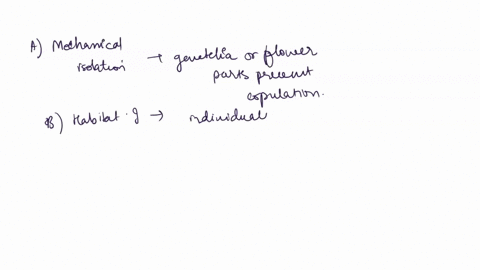 A) Mechanical
isolation → genetelia or flower
parts prevent
copulation.
B) Habitat . I → individual